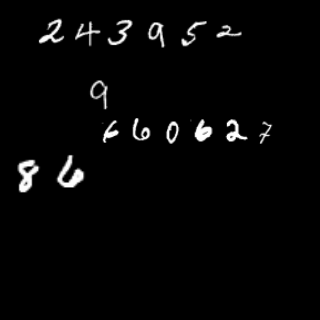 243952
9
660627
86